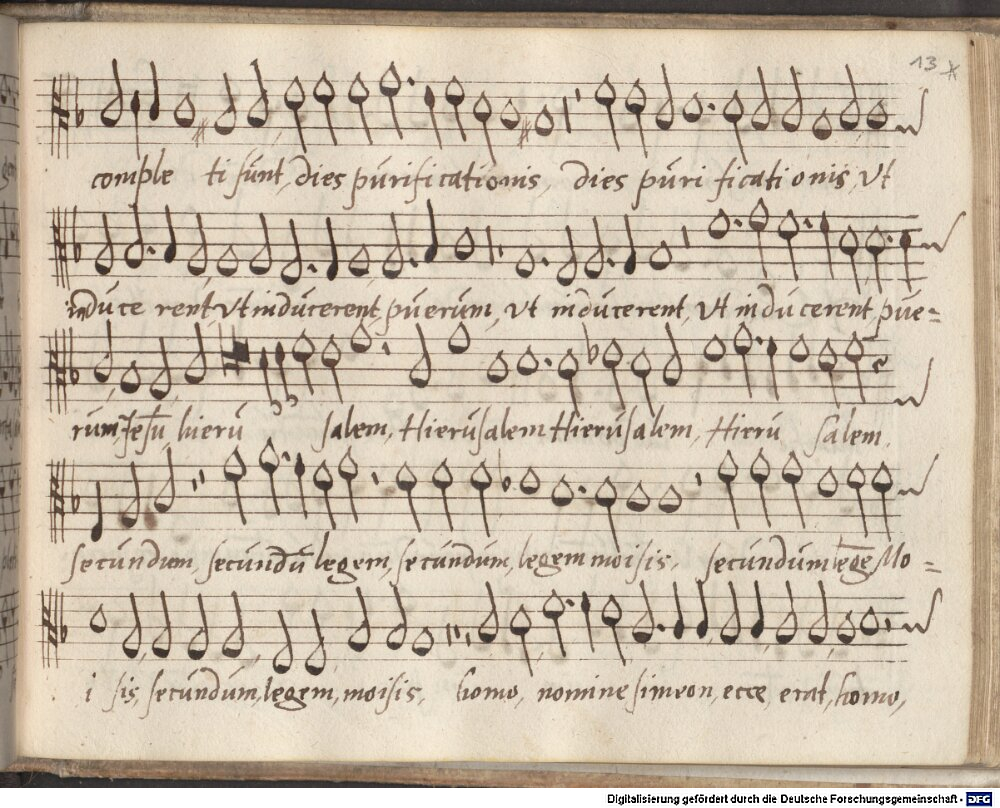 13
comple ti sunt, dies purificationis, dies puri ficationis, Vt
induce rent Vt inducerent, puerum, Vt inducerent, Vt inducerent, pue=
rum, Jesu hieru salem, Hierusalem Hierusalem, Hieru salem.
secundum, secundū legem, secundum, legem moisis, secundum legē, Mo=
i sis, secundum, legem, moisis, homo, nomine simeon, ecce, erat, homo,
Digitalisierung gefördert durch die Deutsche Forschungsgemeinschaft - DFG